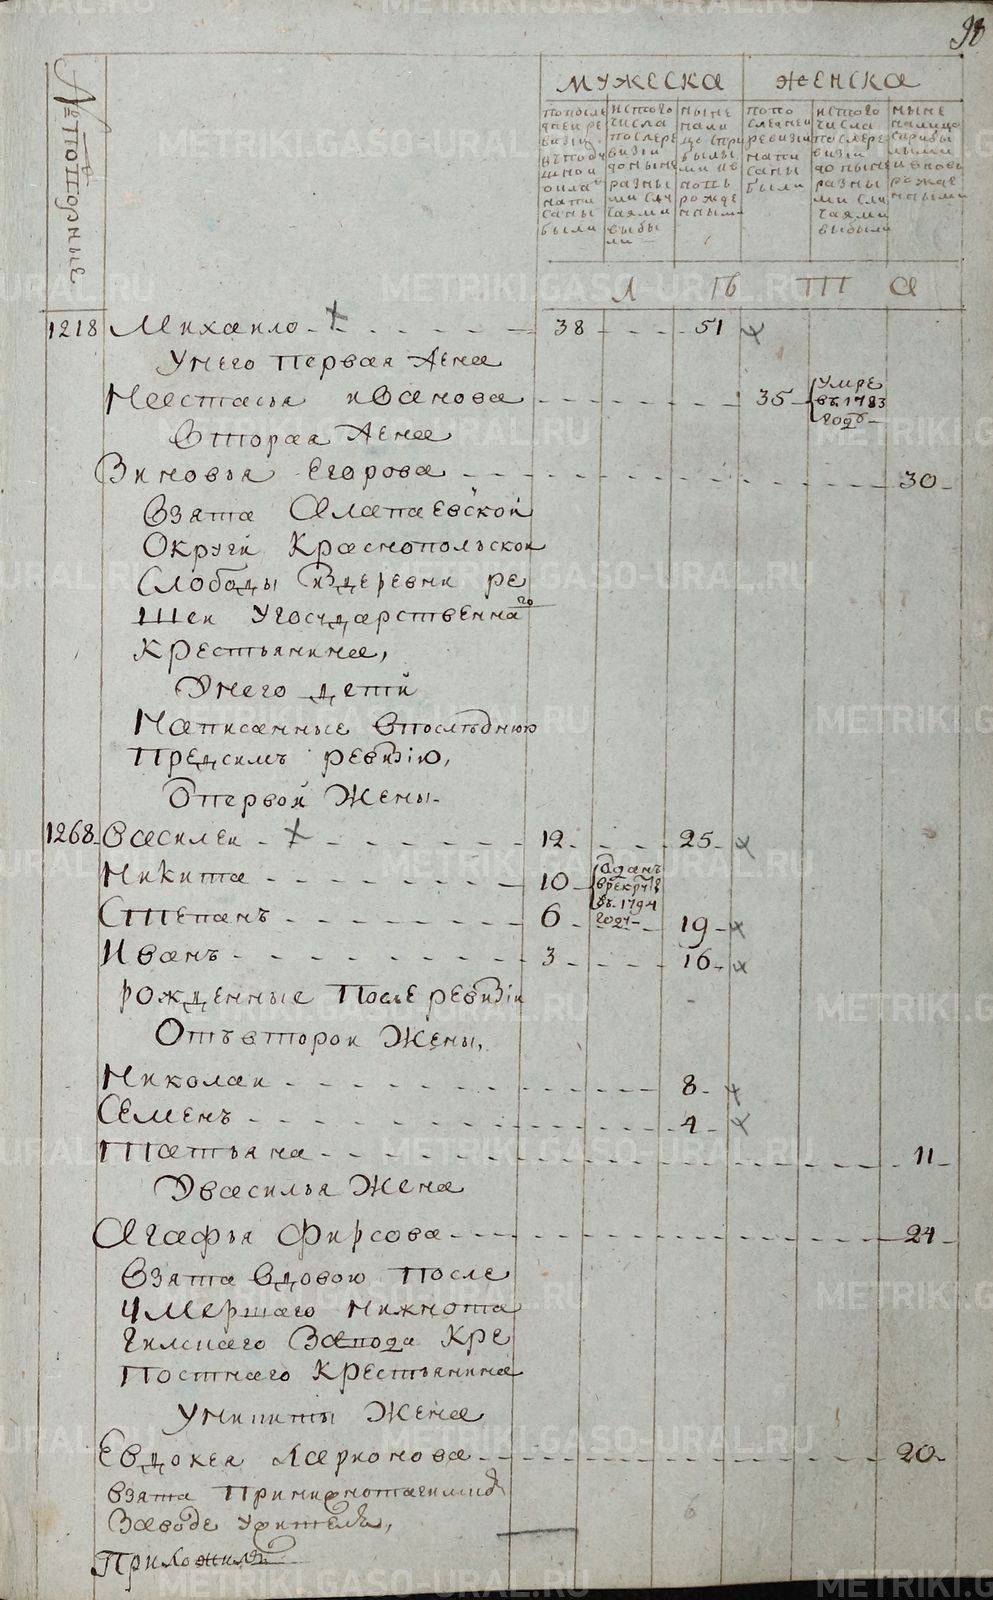 98
МУЖЕСКА ЖЕНСКА
№ поПорные
попосле
дней ре
визіи
наПи
саны
были
исТого
числа
послере
визіи
доныне
разны
ми слу
чаями
выбы
ли
ныне
нали
цо спри
былы
ми ив
новь
рожде
нным
попо
следней
ревизіи
напи
саны
были
исТого
числа
послере
визіи
доныне
разны
ми слу
чаями
выбыли
ныне
налицо
сприбы
лыми
ивновь
рожде
нными
Л Ѣ Т А
1218 Михаило - - - 38 - - - 51
Унего Первая Жена
Настасья иванова - - - 35 умре
въ 1783
году
Вторая Жена
Зиновья Егорова - - - 30
Взята Алапаевской
Округи Краснопольской
Слободы издеревни ре
шеи Угосударственнаго
Крестьянина,
Унего дети
Написанные Впоследнюю
Предсимъ ревизію,
Отпервой Жены.
1268 Василеи - - - 12 - - - 25
Никита - - - 10 Отданъ
врекруты
въ 1794
году
Степанъ - - - 6 - - - 19
Иванъ - - - 3 - - - 16
рожденные После ревизіи
Отъвторои Жены,
Николаи - - - 8
Семенъ - - - 4
Татьяна - - - 11
Увасилья Жена
Агафья Фирсова - - - 24
Взята Вдовою После
Умершаго нижнота
гилскаго Завода Кре
Постнаго Крестьянина
Уникиты Жена
Евдокея Ларионова - - - 20
взята Принижнотагилскомъ
Заводе Ужителя,
Приложилъ
METRIKI.GASO-URAL.RU